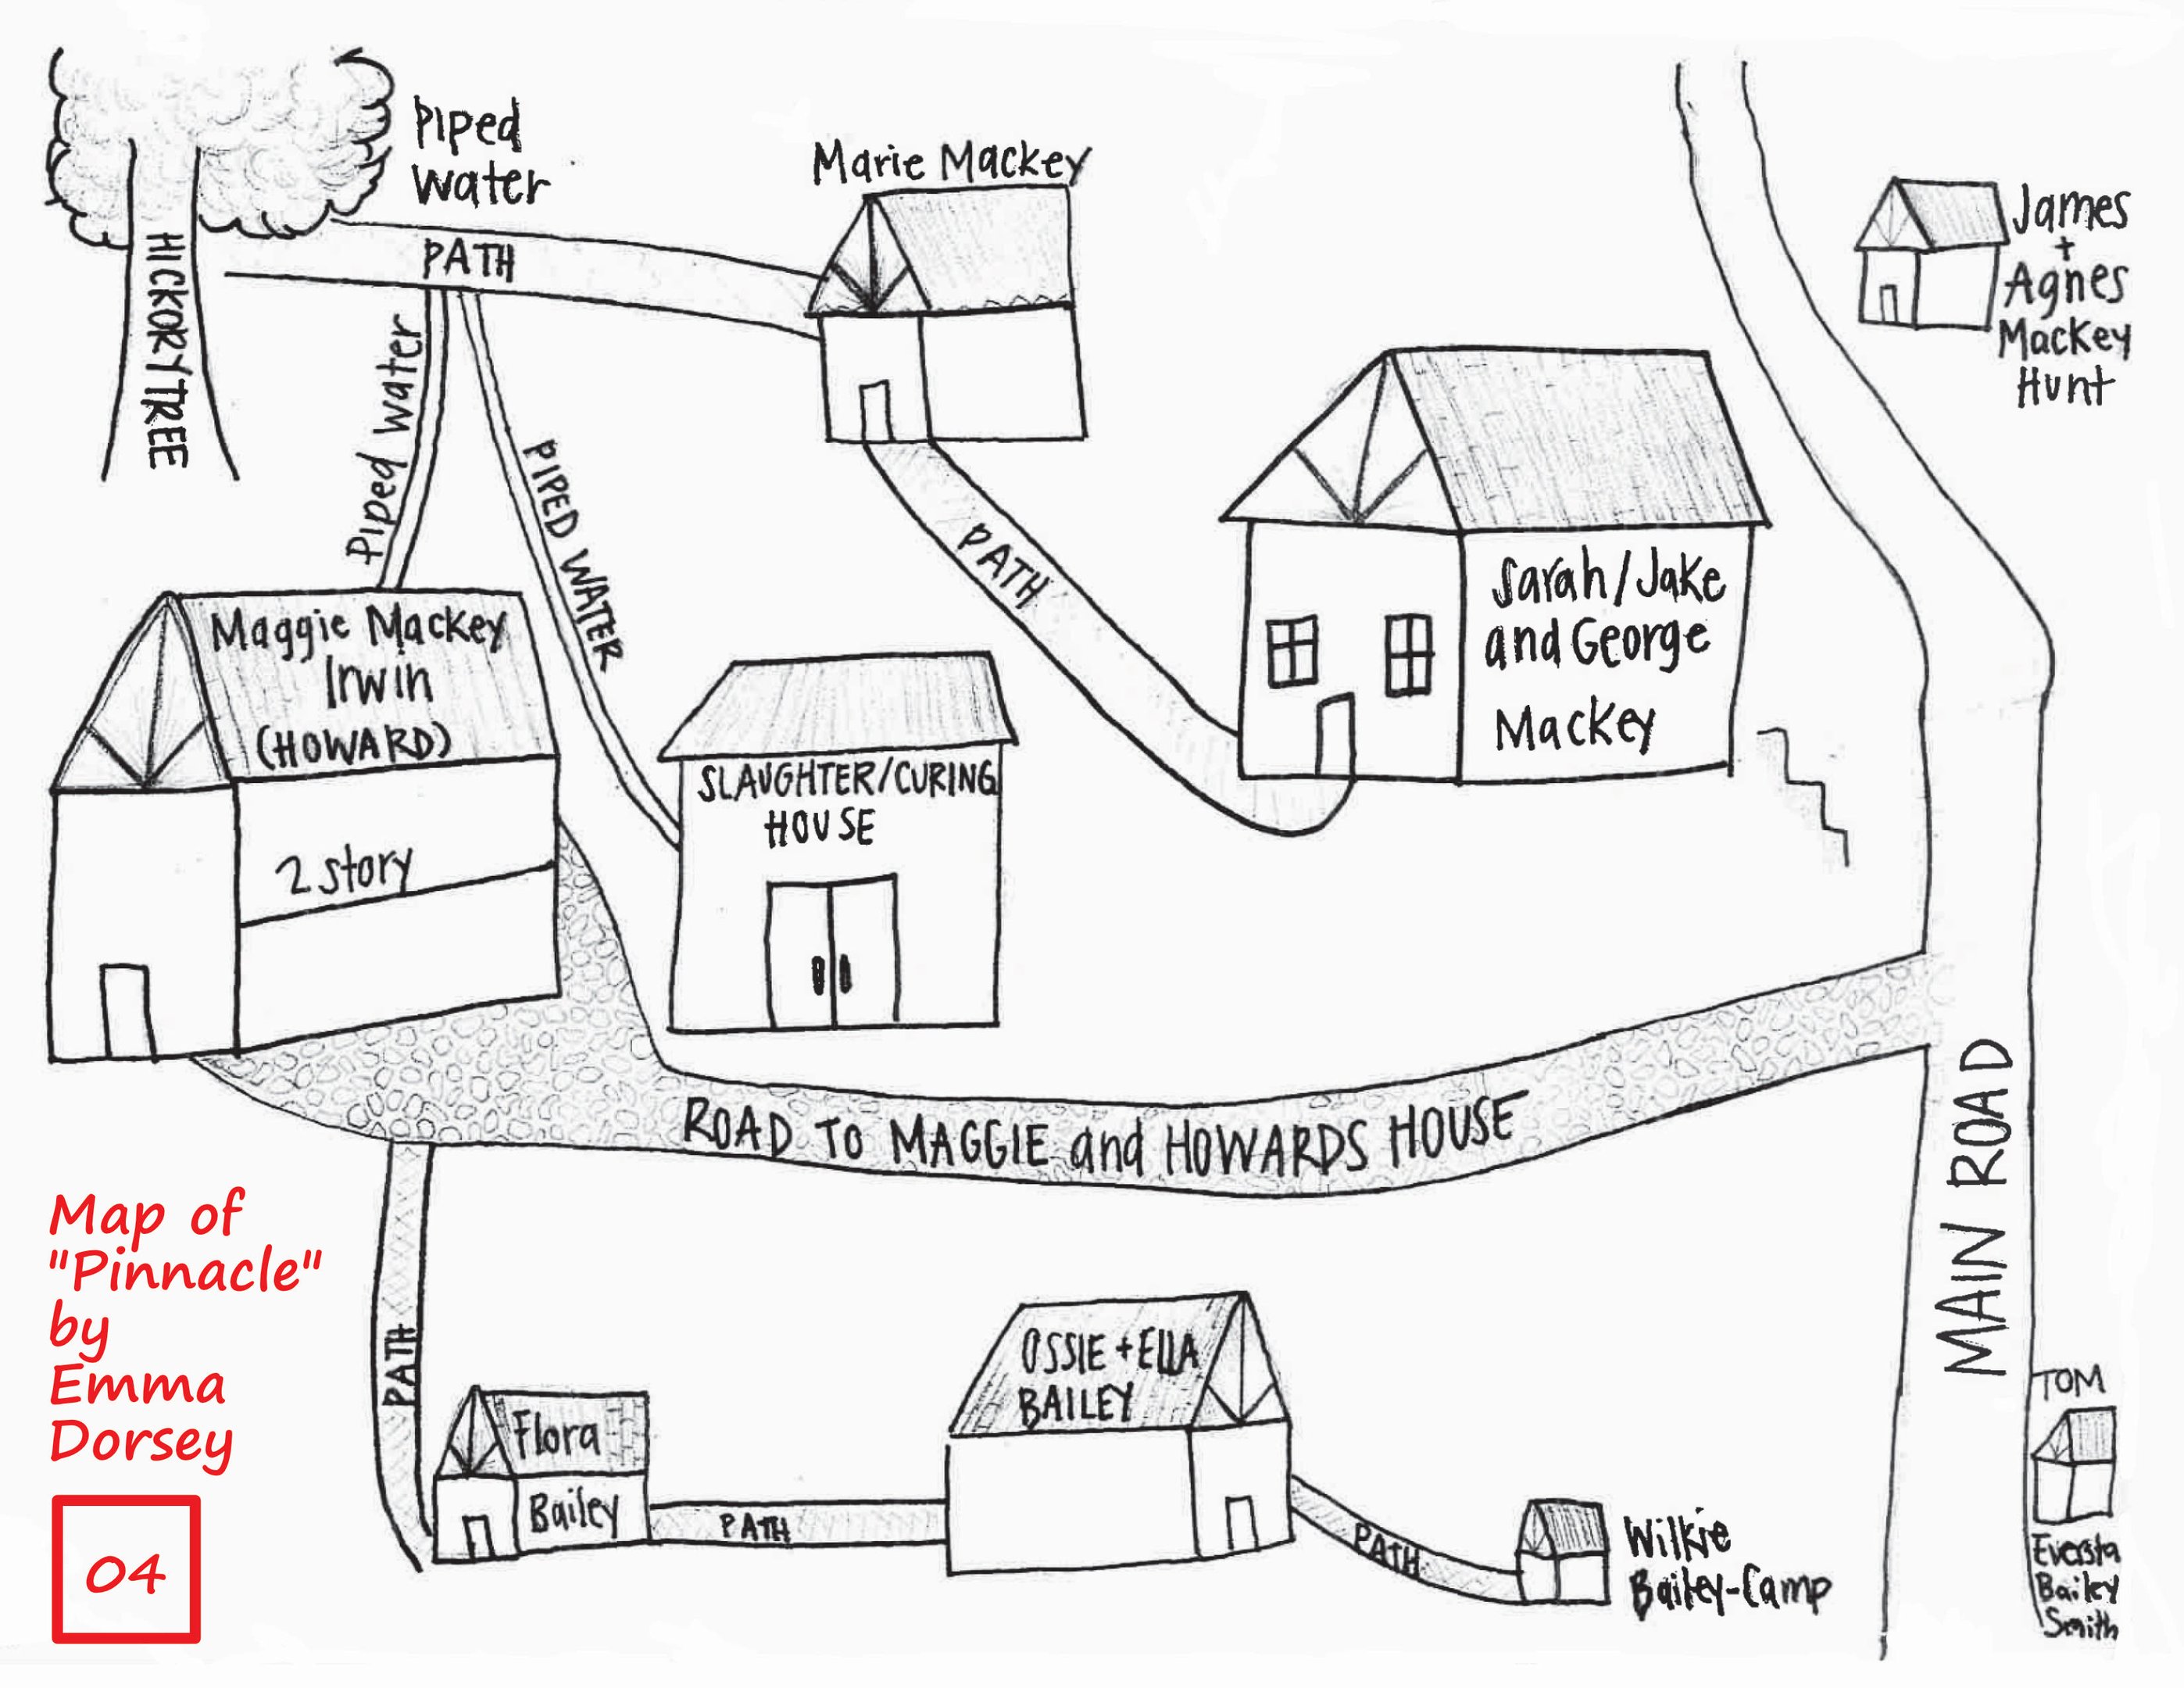 Piped
water
Marie Mackey
PATH
HICKORY TREE
James
+
Agnes
Mackey
Hunt
Piped water
PIPED WATER
PATH
Sarah/Jake
and George
Mackey
Maggie Mackey
Irwin
(HOWARD)
2 story
SLAUGHTER/CURING
HOUSE
ROAD TO MAGGIE and HOWARDS HOUSE
MAIN ROAD
Map of
"Pinnacle"
by
Emma
Dorsey
04
PATH
Flora
Bailey
PATH
OSSIE + ELLA
BAILEY
PATH
Wilkie
Bailey-Camp
TOM
Eversta
Bailey
Smith